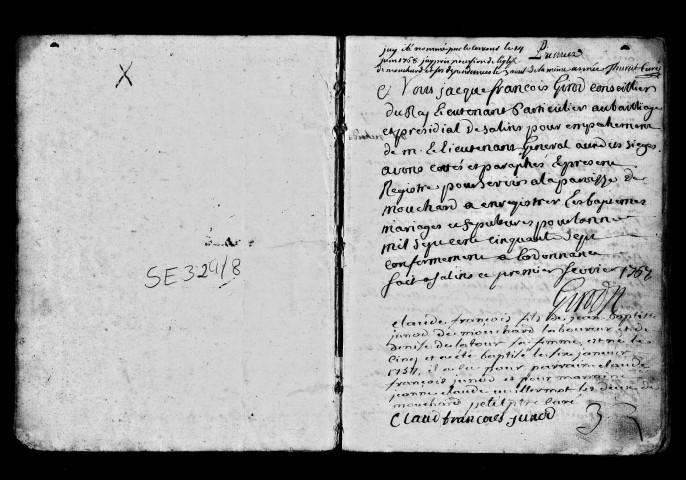 X
SE 329/8
juy été nommé par le
juin 1758 jay pris possession de leglise
de mouchard et ses dépendances le
de la meme année
Premier
Curé
Nous jacque françois Girod conseiller
Du Roy Lieutenant Particulier au bailliage
et presidial de salins pour empechement
de m. Le Lieutenant General auxdits sieges
avons cottés et paraphés Le present
Registre pour servir a la paroisse de
mouchard a enregistrer Les baptemes
mariages et sepultures pour lannée
mil sept cent cinquante sept
conformement a lordonnance
fait a salins ce premier fevrier 1757
Girod
claude françois fils de jean baptiste
junod de mouchard laboureur et de
denise delatour sa femme, est né le
cinq et a été baptisé le six janvier
1757, il a eu pour parrain claude
françois junod et pour marraine
jeanne claude les deux de
mouchard petit ptre curé
Claud francoies junod